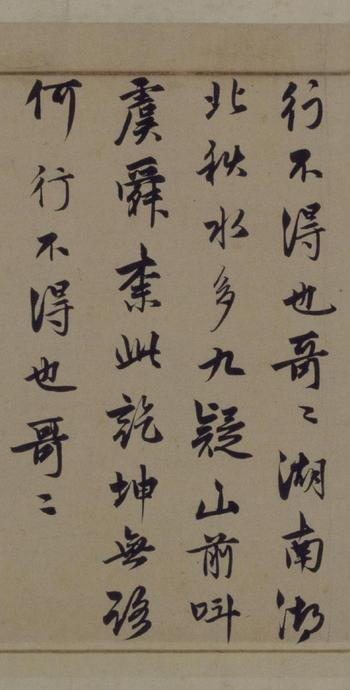 行不得也哥〻湖南湖
北秋水多九疑山前叫
虞舜柰此乾坤無路
何行不得也哥〻